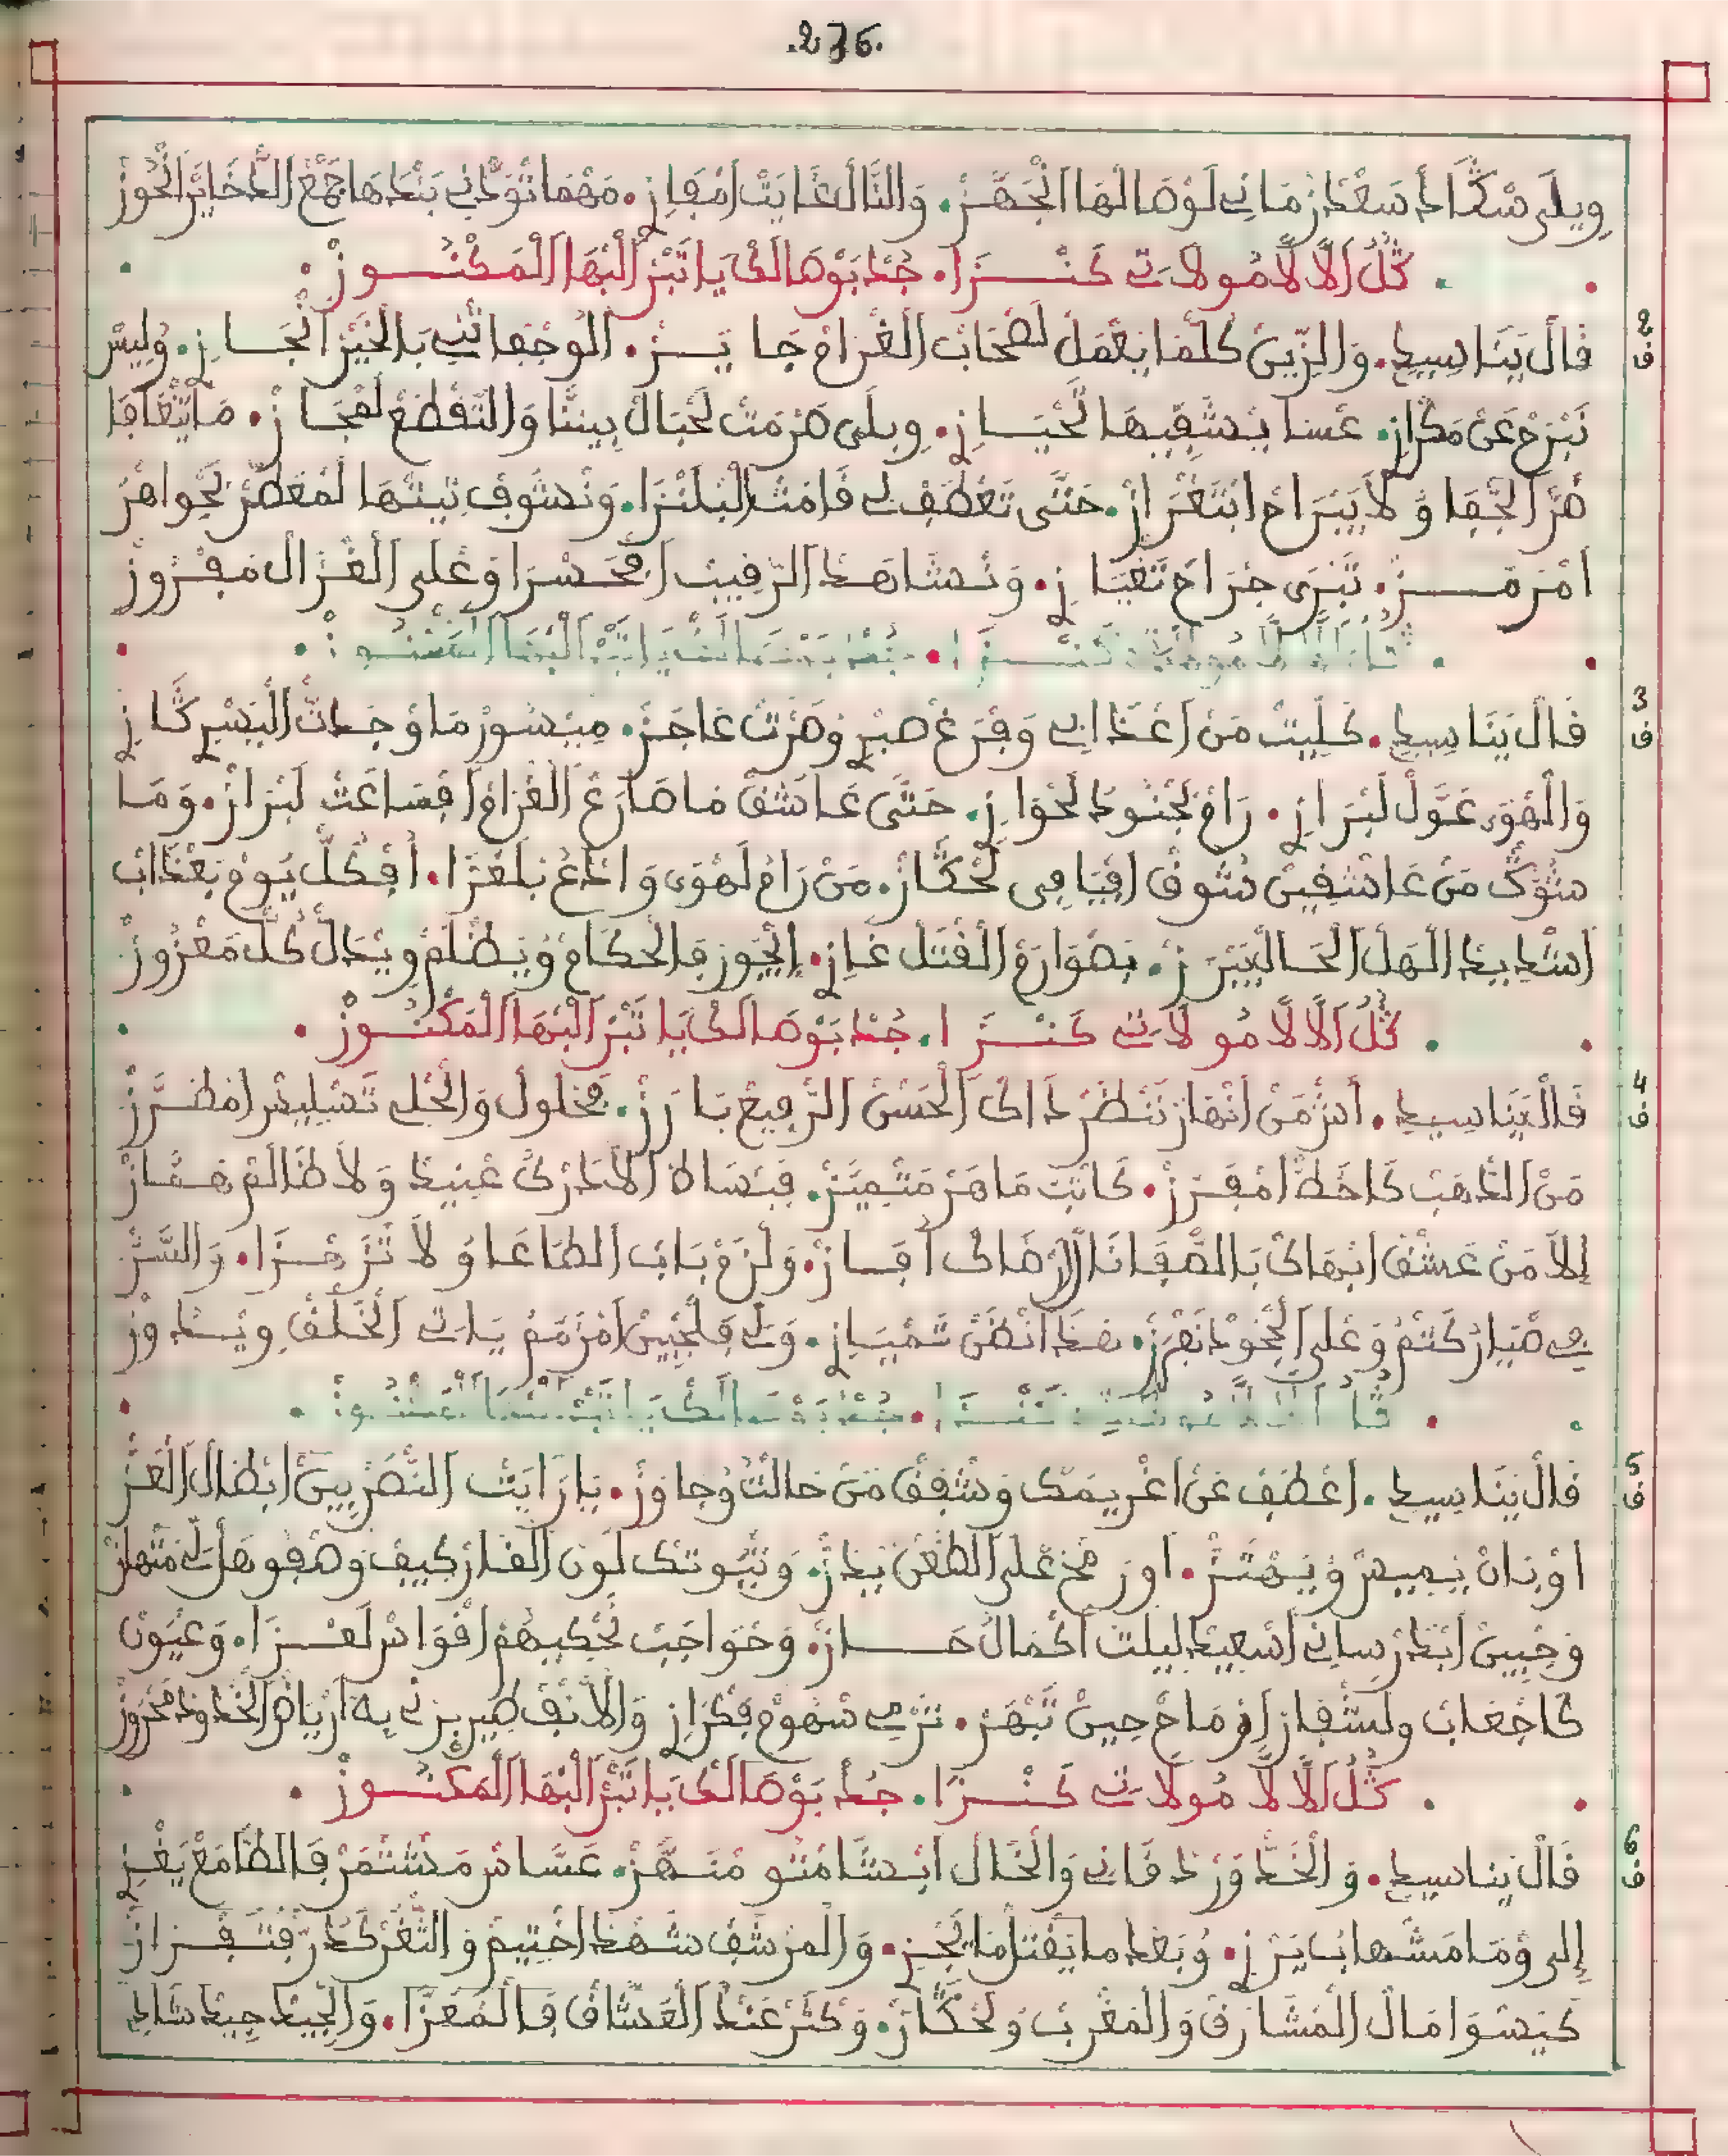 .276.
ويلى سڭاد سعد زماني لوصالها الجهز. والنال غايت امفاز. مهما تودني بندها جمع الدخاير الحوز
ڭل الالا مولاتي كنزا. جد بوصالك يا تبز البها المكنوز
2
ف
قال ينا سيدي. والزين كلما يعمل لصحاب الغرام جايز. الوجفاني بالخير انجاز. وليس
نبرح عن مكراز. عسا يشفيها لحياز. ويلى صرمت لحبال بيننا والتقطع لمجاز. ما يتعافا
ضر الجفا ولا يبراح ابتغراز. حتى تعطف لي قامت البلنزا. ونشوف تيتها لمعطر بجواهر
امرمز. تبرى جراح تعياز. ونشاهد الرقيب امحسرا وعلى الغزال مفزوز
ڭل الالا مولاتي كنزا. جد بوصالك يا تبز البها المكنوز
3
ف
قال ينا سيدي. كليت من اعذابي وفرغ صبري وصرت عاجز. ميسور ما وجدت اليسر ڭاز
والهوى عول لبراز. رام بجنود لحواز. حتى عاشق ما صارع الغرام افساعت لبراز. وما
شوڭ من عاشقين شوق افيافي لحڭاز. من رام لهوى واذع بلغزا. افكل يوم بعذاب
اشديد الهل الحال يبرز. بصوارم القتل غاز. ايجوز فالحكام ويظلم ويدل كل معزوز
ڭل الالا مولاتي كنزا. جد بوصالك يا تبز البها المكنوز
4
ف
قال ينا سيدي. اشمن انهار ننظر داك الحسن الرفيع بارز. محلول والحلي تسليس امطرز
من الذهب كاخط امفرز. كاتب ماهر متميز. فبساط الا درك عبيد ولا ظالم همماز
الا من عشق ابهاك بالصفا نال ارضاك افاز. ولزم باب الطاعا ولا تزهزا. والسر
في صياز كتم وعلى الجحود نفرز. هذا نظن تمياز. ولي فلجبين امرمم ياتي الخلف ويدوز
ڭل الالا مولاتي كنزا. جد بوصالك يا تبز البها المكنوز
5
ف
قال ينا سيدي. اعطف عن اغريمك وشفق من حالت وجاوز. يا رايت النصر بين ابطال العز
او بان يميس ويهتز. اورمح على الطعن يذز. وتيوتك لون القار كيف وصفوهل لي متهاز
وجبين ابدر ساني اسعيد ليلت اكمال حاز. وحواجب نحكيهم اقواس لعزا. وعيون
كاجعاب ولشفاز ارماح حين تبهز. ترمي سهوم فكراز والانف طير برني به ارياض الخدود محروز
ڭل الالا مولاتي كنزا. جد بوصالك يا تبز البها المكنوز
6
ف
قال ينا سيدي. والخد ورد قاني والخال ابشامتو منهز. عساس مشتمر فالطامع يغز
الى وما مشهاب يرز. وبعد ما يقتل ما يجز. والمرشف شهد اختيم والثغر كدر فتفراز
كيسوا مال المشارق والمغرب ولحڭاز. وكتر عند العشاق فالمعزا. والجيد جيد شادي